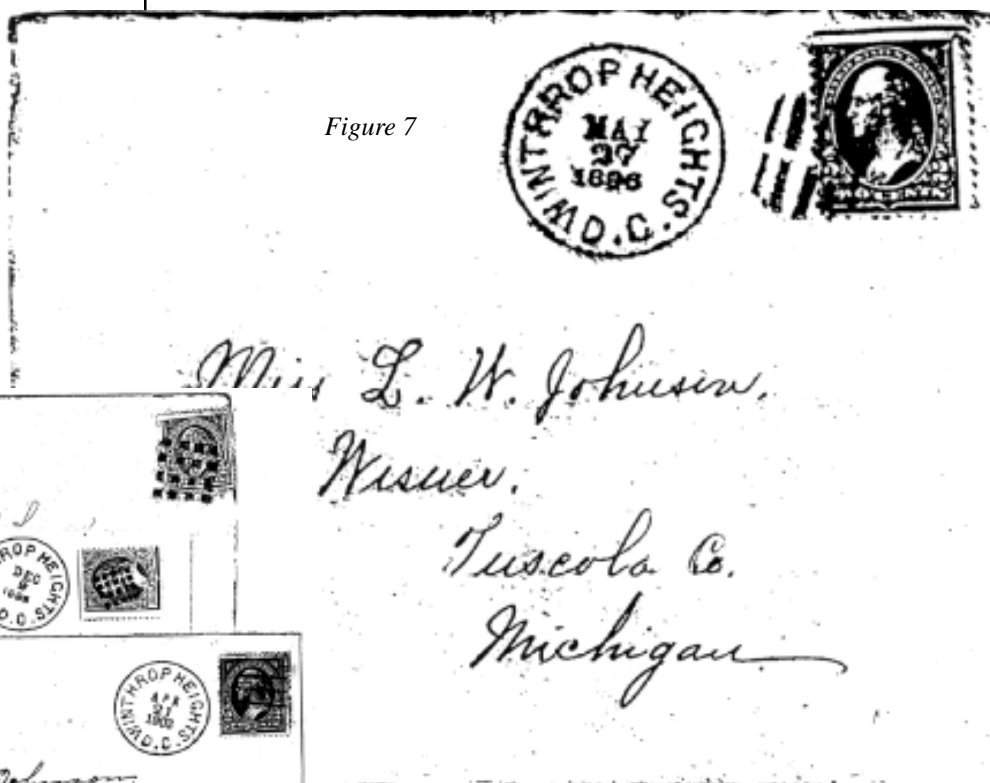 Figure 7
WINTHROP HEIGHTS.
MAY
27
1896
D.C.
Miss L. W. Johnson.
Wisner.
Tuscola Co.
Michigan
ROP HEIGHTS
DEC
D.C.
WINTHROP HEIGHTS.
APR
21
D.C.